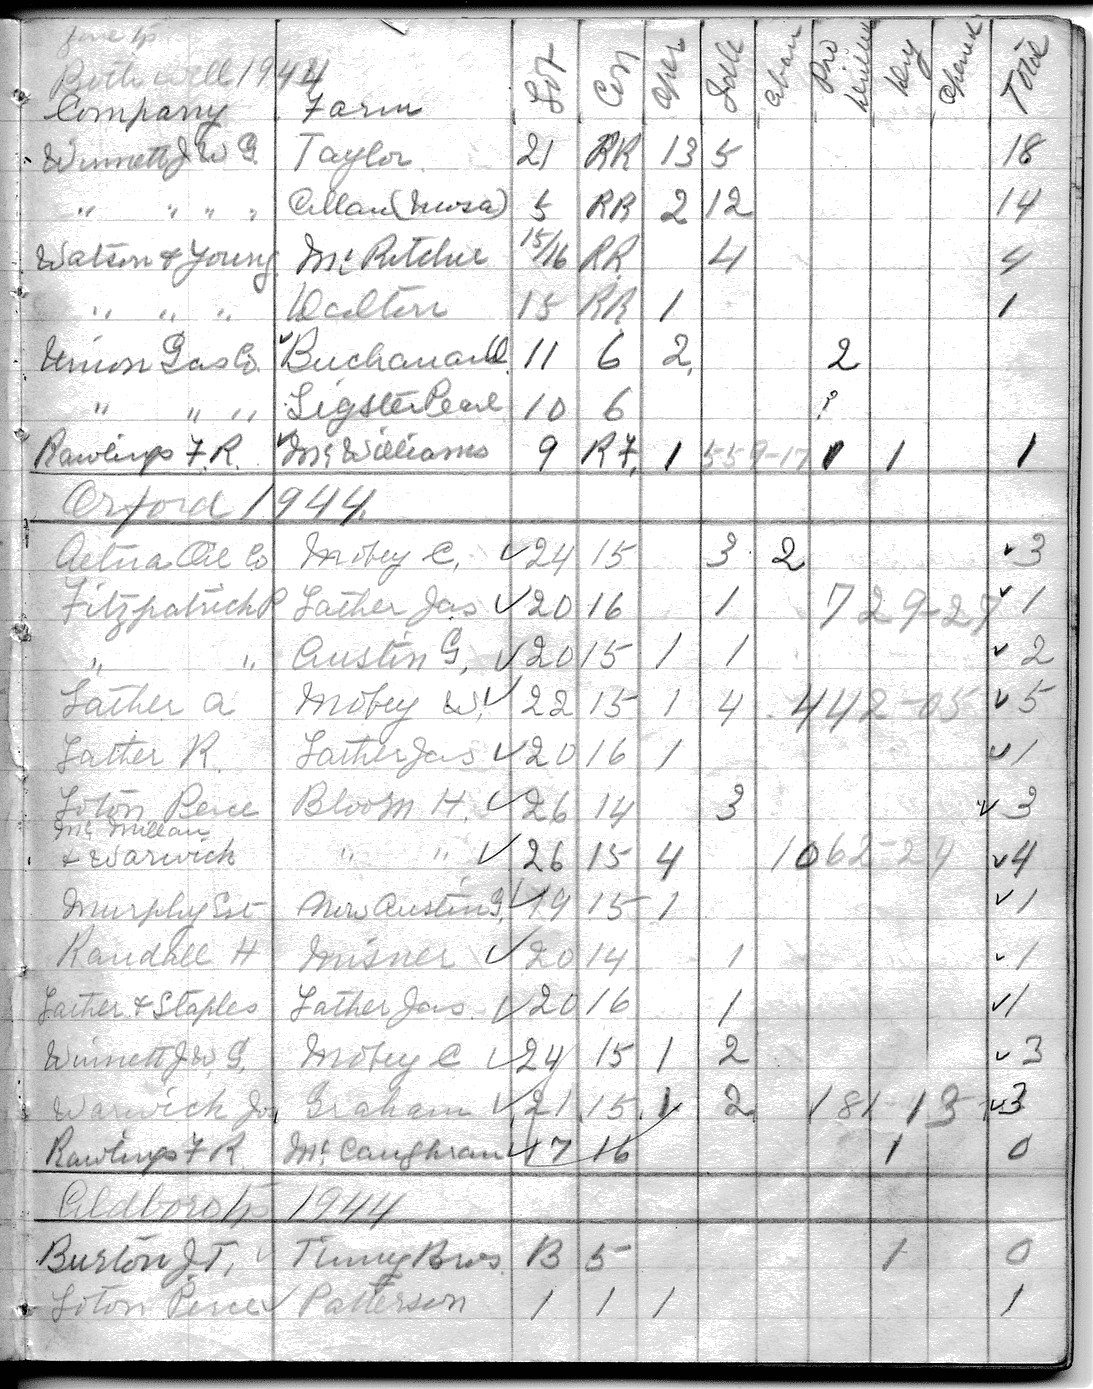 Bothwell 1944
Company Farm Lot Con Oper Idle Aban Pro Drilling Dry Opened Total
Winnett J W G. Taylor. 21 RR 13 5 18
" " " " Allan (Mosa) 5 RR 2 12 14
Watson & Young McRitchie 15/16 RR 4 4
" " " Walton 15 RR 1 1
Union Gas Co. Buchanan D. 11 6 2 2
" " " Ligster Pearl 10 6 ?
Rawlings F. R. McWilliams 9 R7. 1 559-17 1 1 1
Orford 1944.
Aetna Oil Co Mobey C. ✓ 24 15 3 2 ✓ 3
Fitzpatrick R Lather Jas ✓ 20 16 1 729-27 ✓ 1
" " Austin G. ✓ 20 15 1 1 ✓ 2
Lather A Mobey W. ✓ 22 15 1 4 442-05 ✓ 5
Lather R. Lather Jas ✓ 20 16 1 ✓ 1
Loton Perce Bloom H. ✓ 26 14 3 ✓ 3
McMillan
& Warwick " " ✓ 26 15 4 1062-24 ✓ 4
Murphy Est Mrs Austin G. ✓ 19 15 1 ✓ 1
Randall H Misner ✓ 20 14 1 ✓ 1
Lather & Staples Lather Jas. ✓ 20 16 1 ✓ 1
Winnett J. W. G. Mobey C ✓ 24 15 1 2 ✓ 3
Warwick Jos Graham ✓ 21 15 1 2 181-13 ✓ 3
Rawlings F R. McCaughran ✓ 17 16 1 0
Aldboro Tp 1944
Burton J T. ✓ Tunny Bros B 5 1 0
Loton Perce ✓ Patterson 1 1 1 1